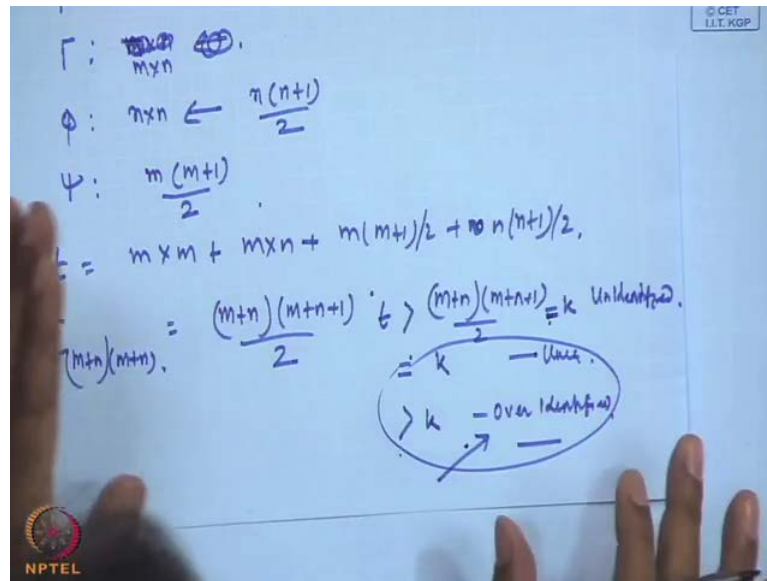 © CET
I.I.T. KGP
Γ : m×n
φ : n×n ← n(n+1)/2
Ψ : m(m+1)/2
t = m×m + m×n + m(m+1)/2 + n(n+1)/2,
(m+n)(m+n). = (m+n)(m+n+1)/2 t > (m+n)(m+n+1)/2 = k Unidentified.
= k —
> k - Over Identified
NPTEL